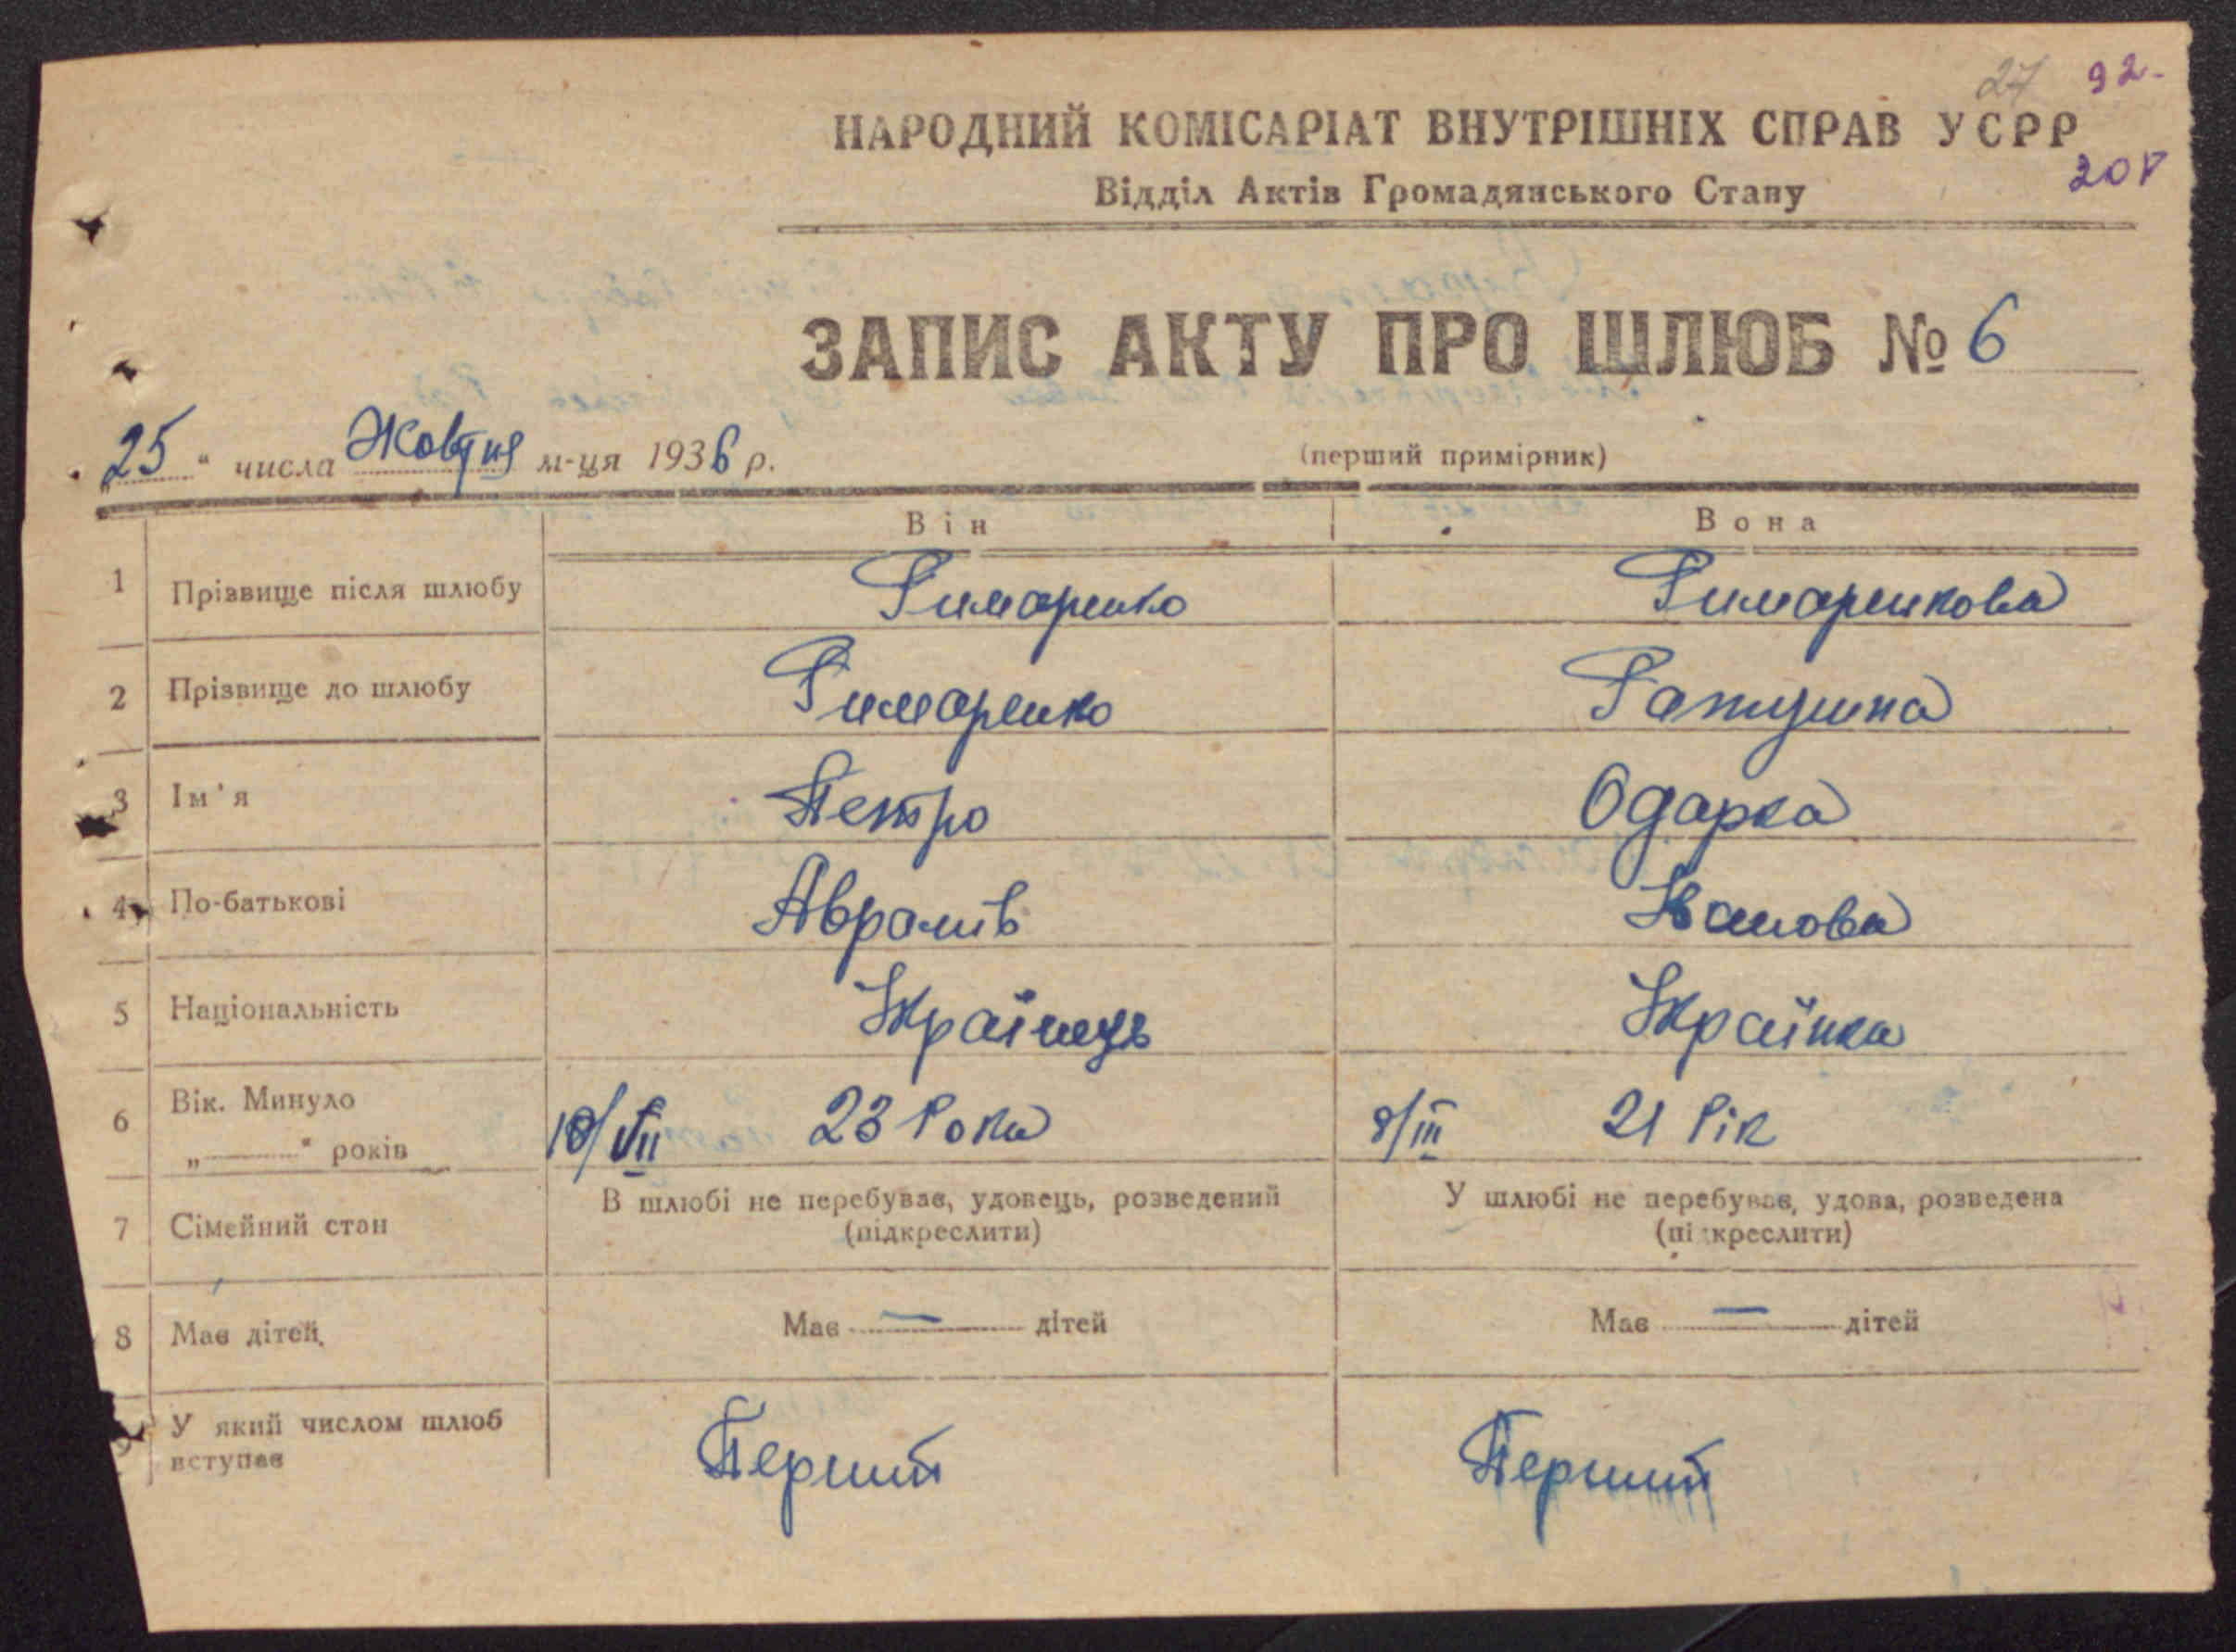 27 92-
НАРОДНИЙ КОМІСАРІАТ ВНУТРІШНІХ СПРАВ УСРР
Відділ Актів Громадянського Стану
ЗАПИС АКТУ ПРО ШЛЮБ № 6
„25“ числа Жовтня м-ця 1936 р. (перший примірник)
Він Вона
1 Прізвище після шлюбу Римаренко Римаренкова
2 Прізвище до шлюбу Римаренко
3 Ім'я Петро Одарка
4 По-батькові Аврамів Іванова
5 Національність Українець Українка
6 Вік. Минуло „———“ років 18/VII 23 Роки 8/III 21 Рік
7 Сімейний стан В шлюбі не перебуває, удовець, розведений (підкреслити) У шлюбі не перебуває, удова, розведена (підкреслити)
8 Має дітей. Має — дітей Має — дітей
У який числом шлюб вступає Перший Перший